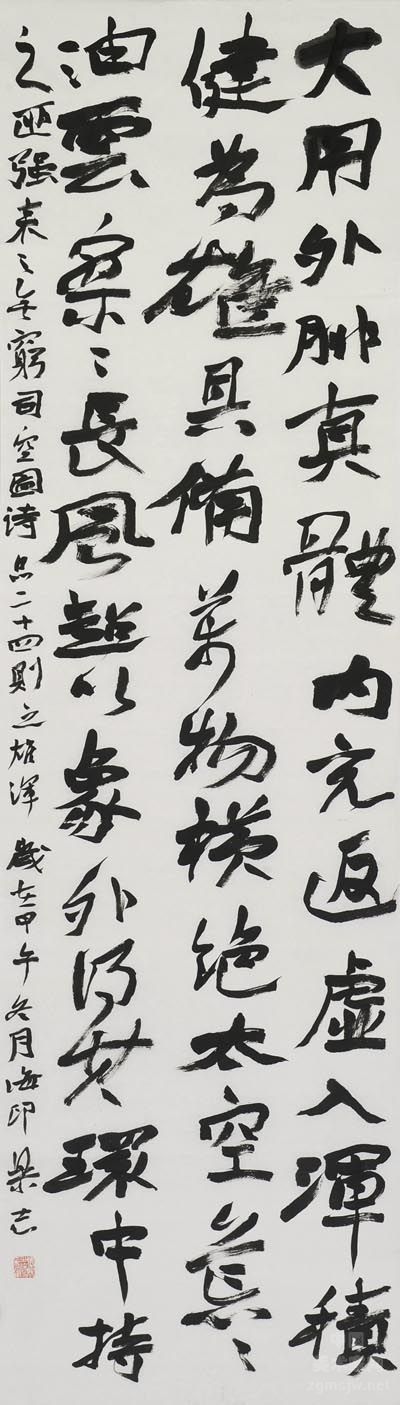 大用外腓真體内充返虛入渾積
健為雄具備萬物横绝太空荒〻
油雲寥〻長風超以象外得其環中持
之匪强来之無窮司空圖詩品二十四則之雄渾 歲在甲午冬月海印梁志
zgmsjw.net